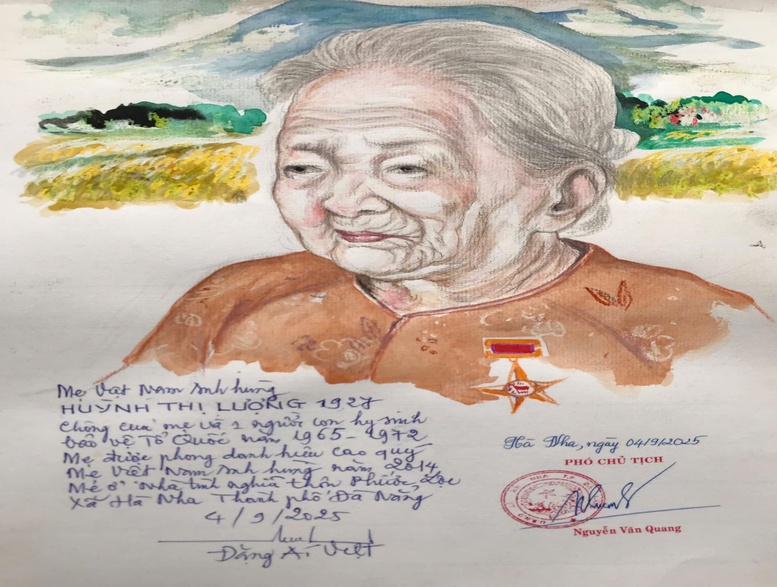 Mẹ Việt Nam Anh hùng
HUỲNH THỊ LƯỢNG 1927
Chồng của mẹ và 1 người con hy sinh
bảo vệ Tổ Quốc năm 1965-1972
Mẹ được phong danh hiệu cao quý
Mẹ Việt Nam Anh hùng năm 2014
Mẹ ở nhà tình nghĩa thôn Phước Lộc
Xã Hà Nha Thành phố Đà Nẵng
4/9/2025
Đặng Ái Việt
Hà Nha, ngày 04/9/2025
PHÓ CHỦ TỊCH
Nguyễn Văn Quang